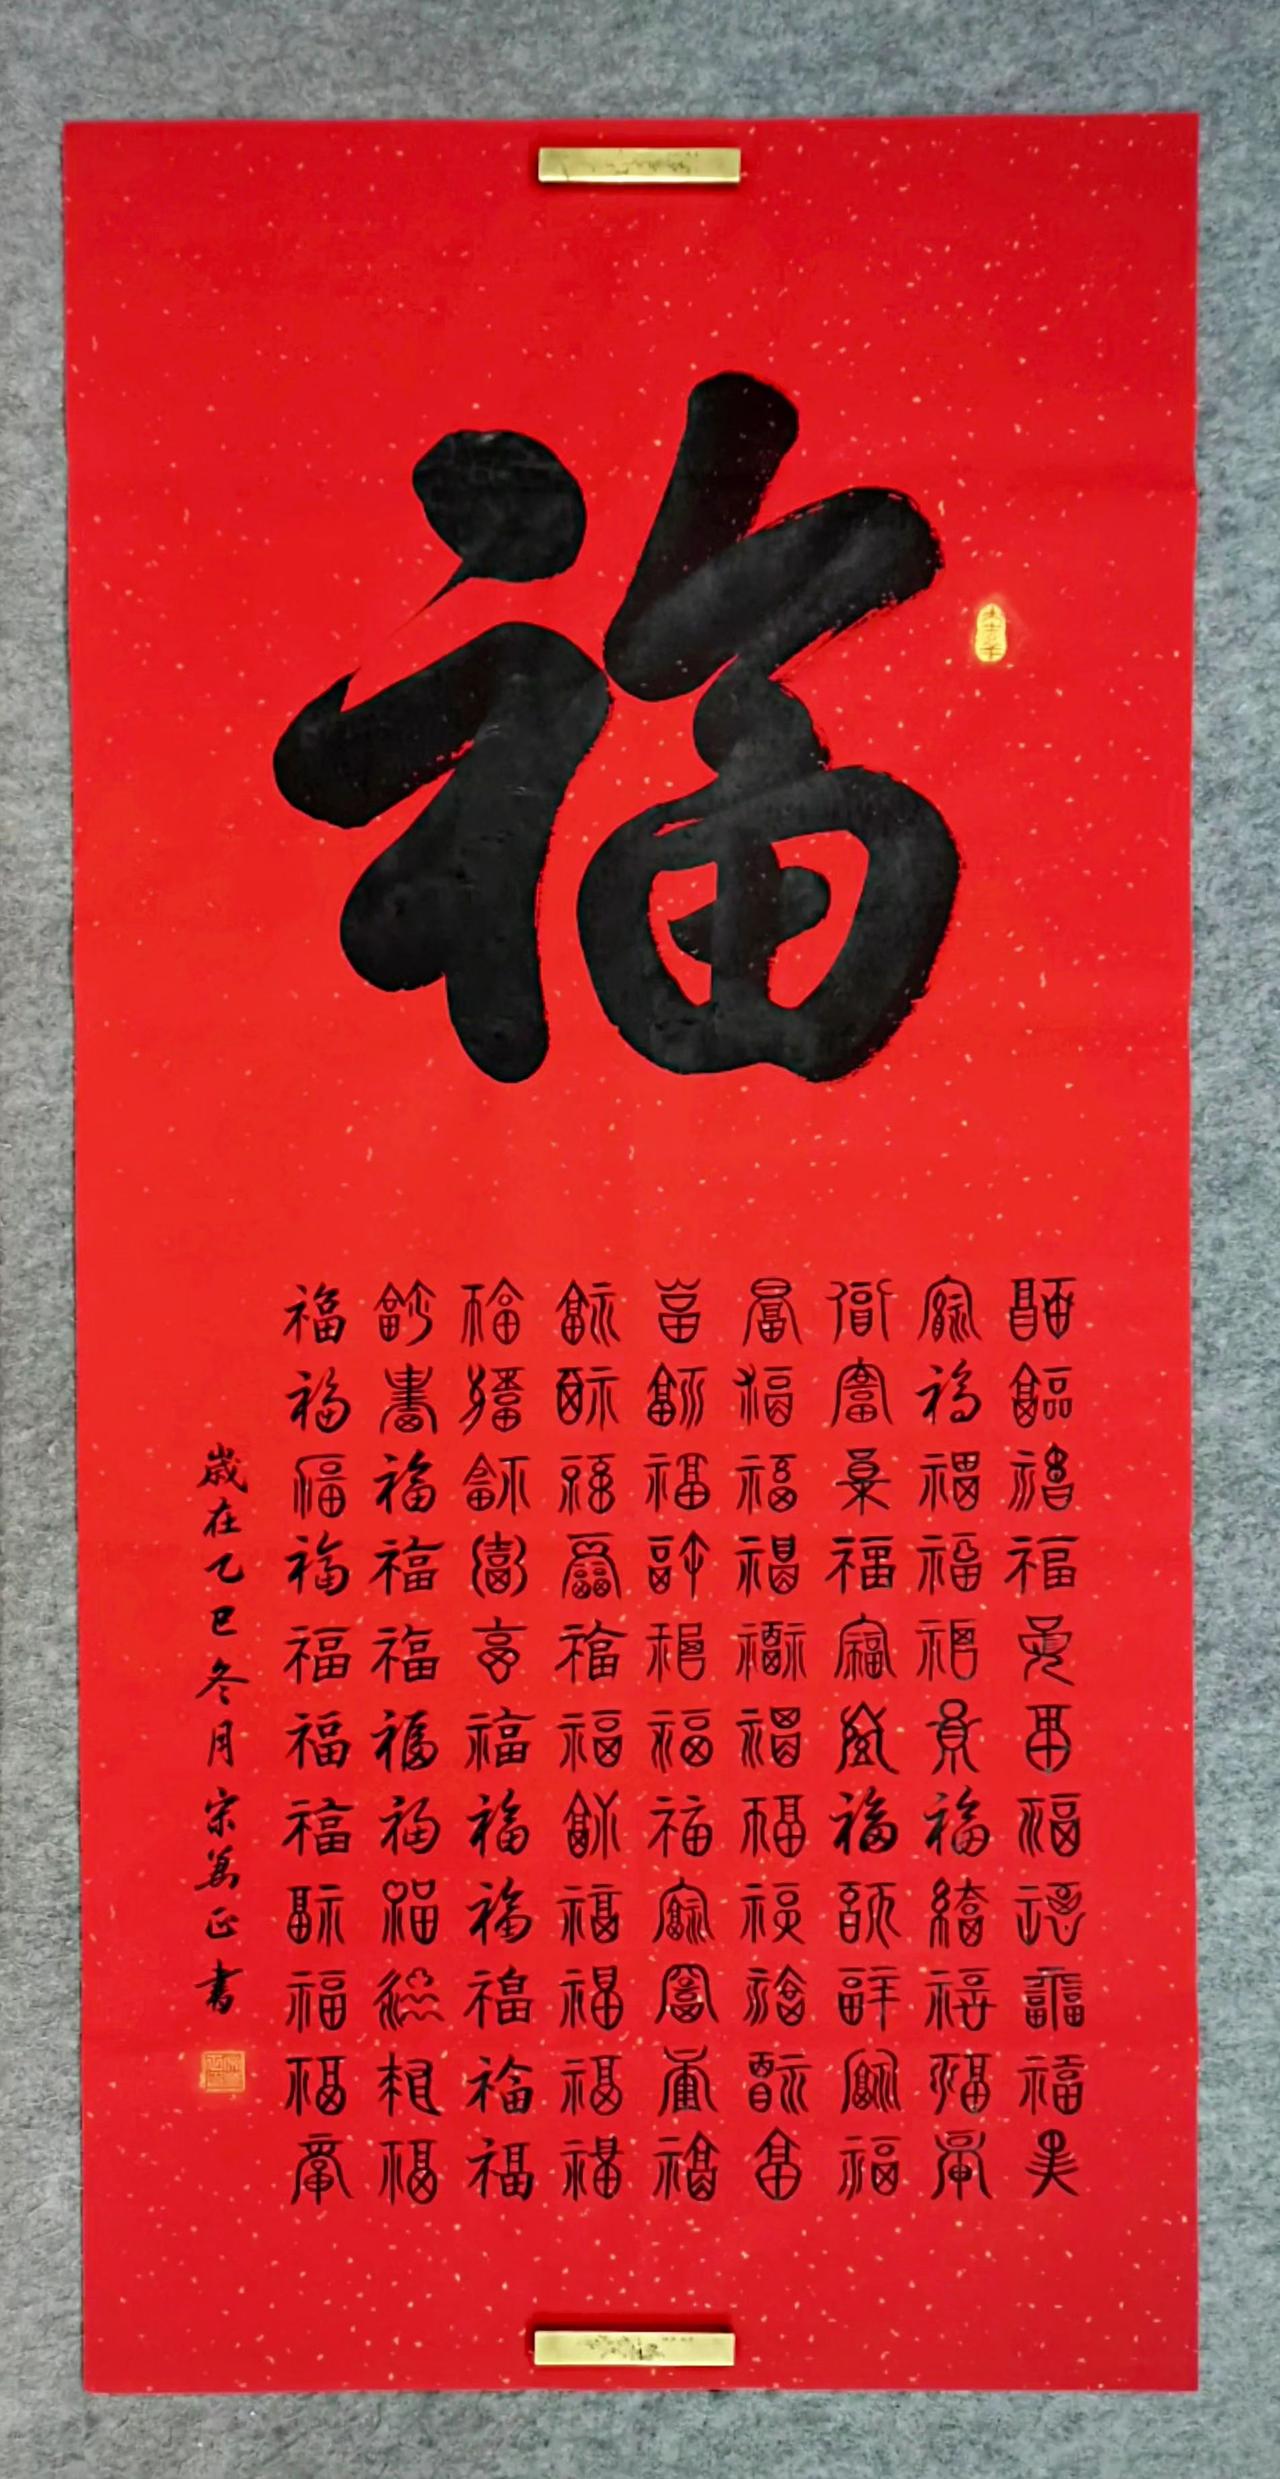 福
福福福福福福福福福福福
福福福福福福福福福福福
福福福福福福福福福福福
福福福福福福福福福福福
福福福福福福福福福福福
福福福福福福福福福福福
福福福福福福福福福福福
福福福福福福福福福福福
福福福福福福福福福福福
歲在乙巳冬月宋萬正書